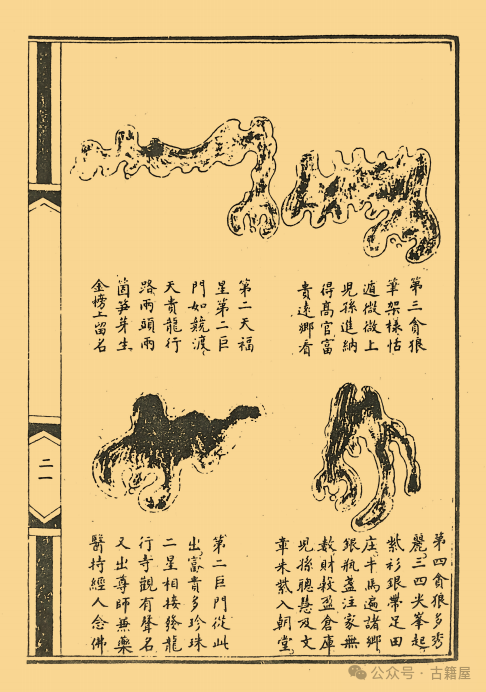 第三貪狼
筆架樣恬
微微上
児孫進納
得髙官富
貴遠鄉看
第二天福
星第二巨
門如競渡
天貴龍行
路兩頭兩
箇笋芽生
金榜上留名
第四貪狼多秀
麗三四尖峯起
紫衫銀帶足田
庄牛馬遍諸鄉
銀瓶盞注家無
数財穀盈倉庫
児孫聰慧及文
章朱紫入朝堂
第二巨門從此
出富貴多珍珠
二星相接發龍
行寺觀有聲名
又出尊師無藥
醫持經人念佛
二一
公众号 · 古籍屋